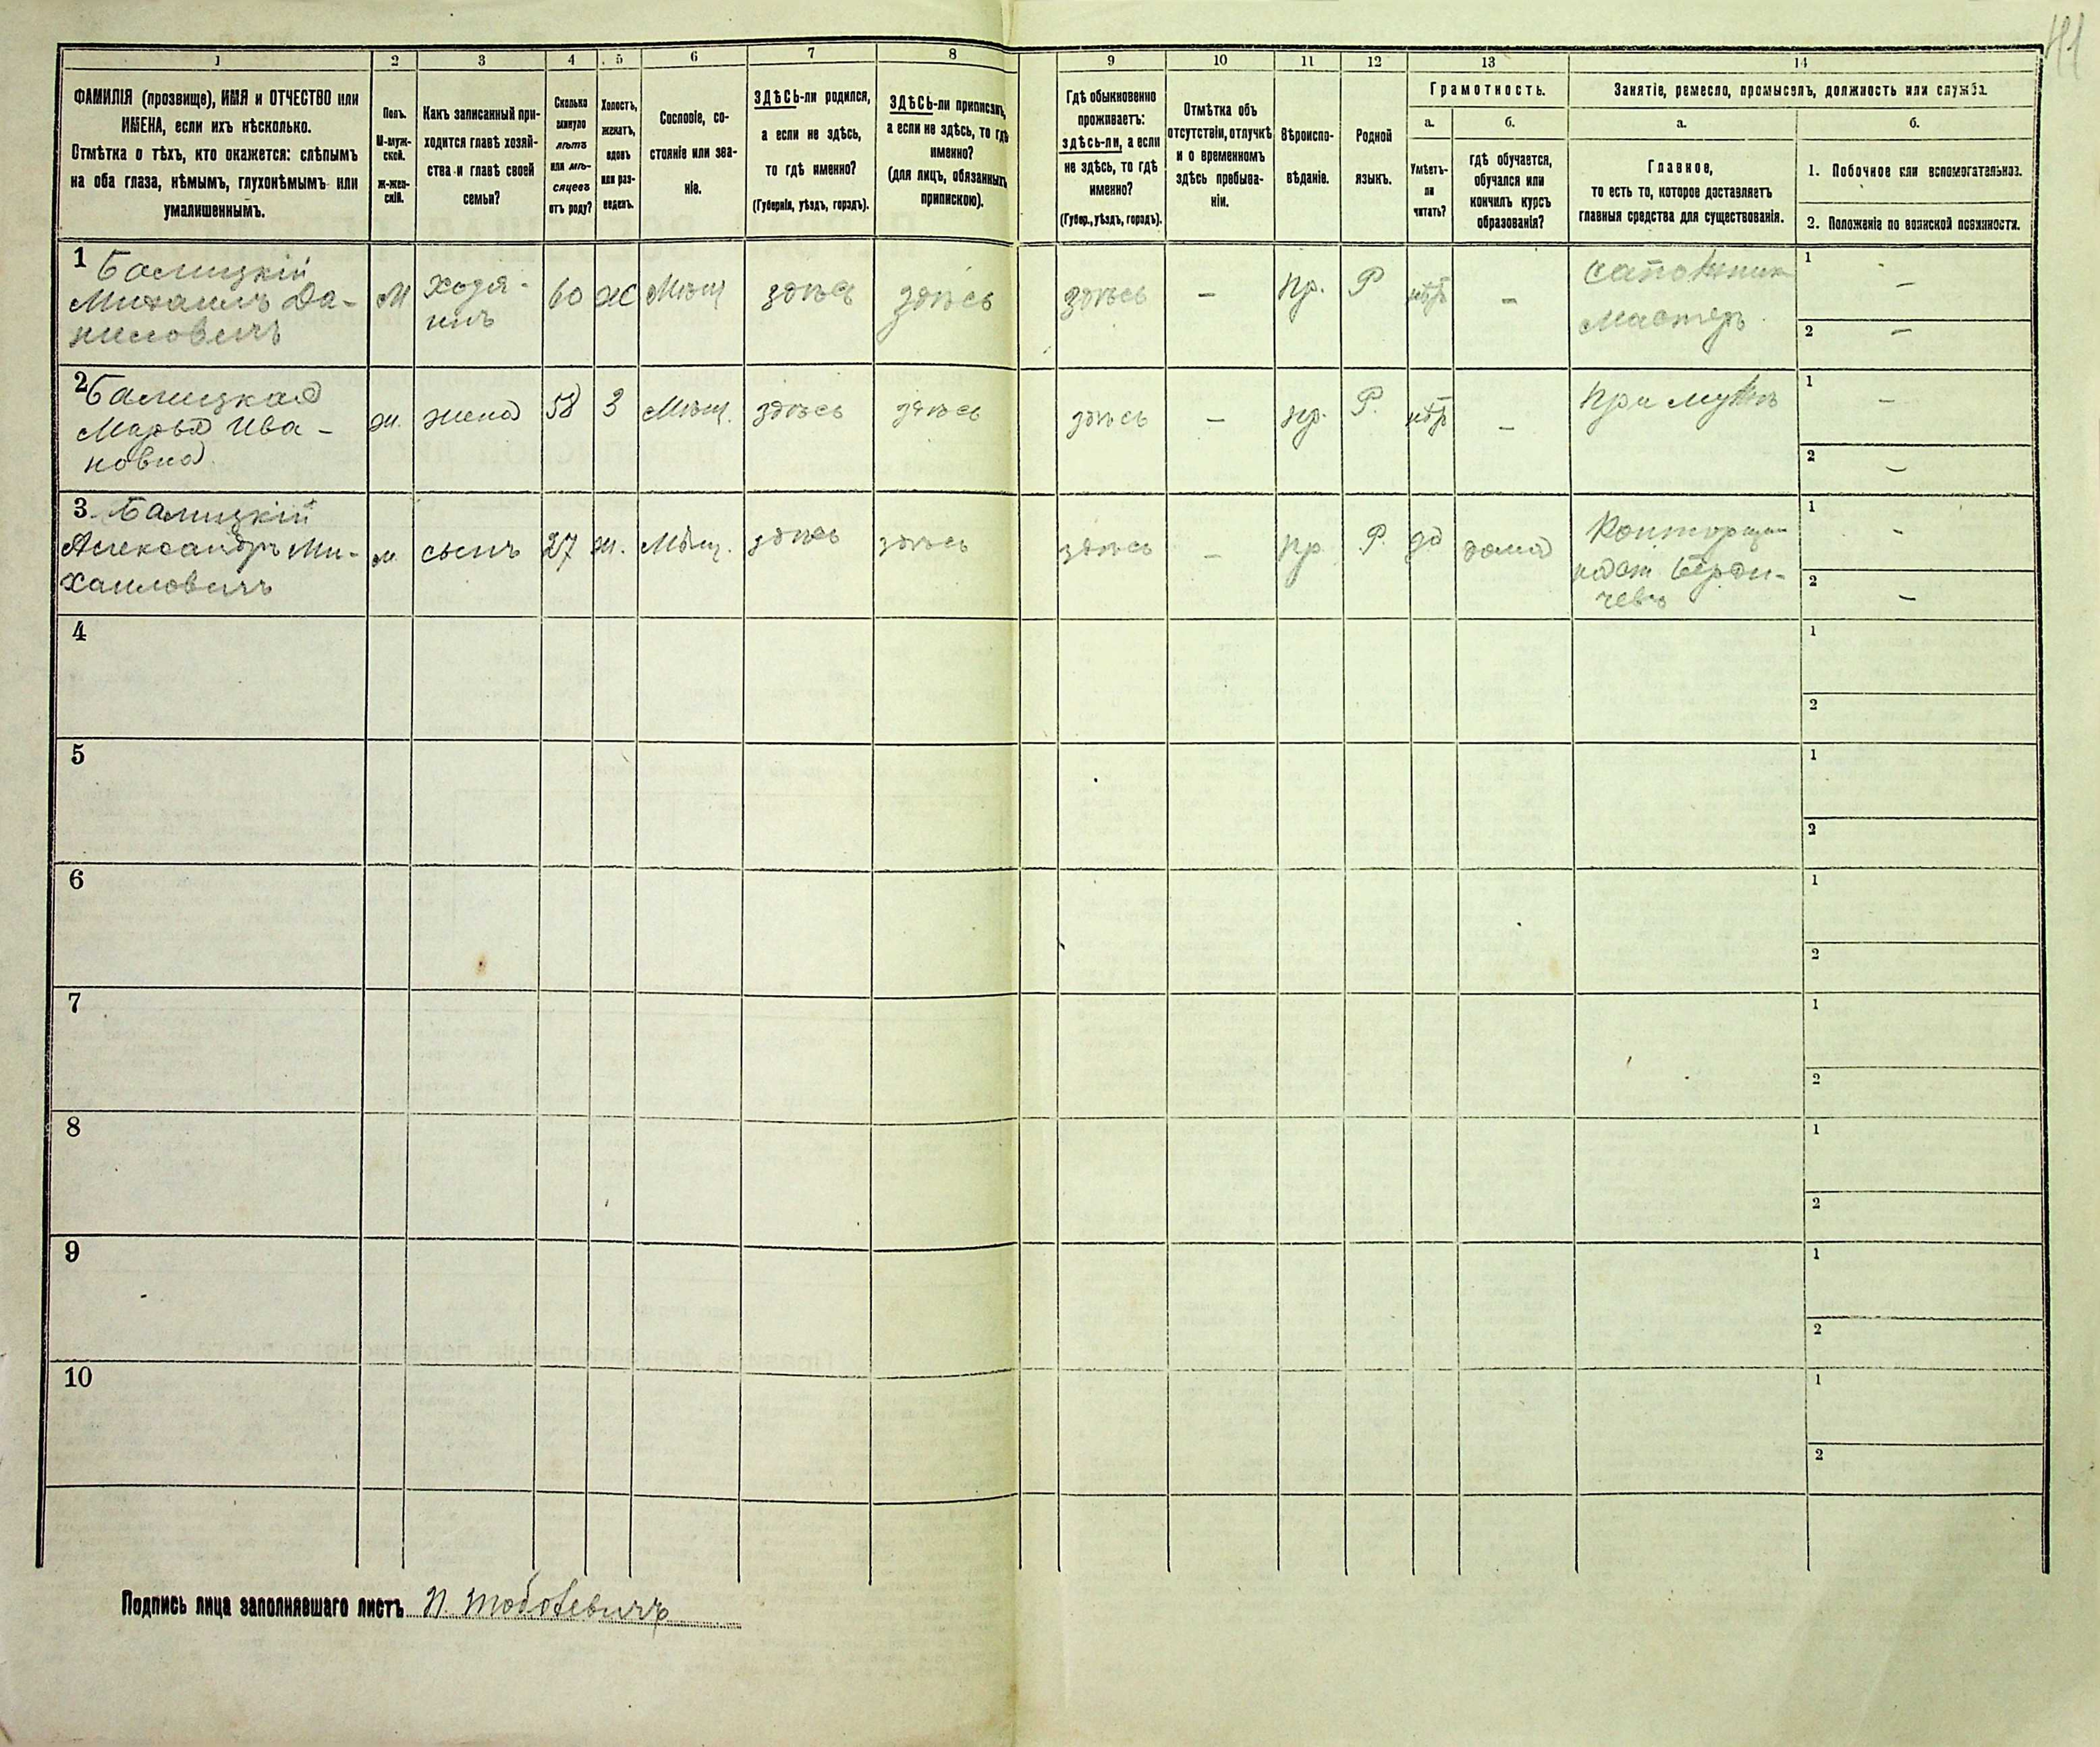 41
1 2 3 4 5 6 7 8 9 10 11 12 13 14
ФАМИЛІЯ (прозвище), ИМЯ и ОТЧЕСТВО или
ИМЕНА, если ихъ нѣсколько.
Отмѣтка о тѣхъ, кто окажется: слѣпымъ
на оба глаза, нѣмымъ, глухонѣмымъ или
умалишеннымъ.
Полъ.
М-муж-
ской.
ж-жен-
скій.
Какъ записанный при-
ходится главѣ хозяй-
ства и главѣ своей
семьи?
Сколько
минуло
лѣтъ
или мѣ-
сяцевъ
отъ роду?
Холостъ,
женатъ,
вдовъ
или раз-
веденъ.
Сословіе, со-
стояніе или зва-
ніе.
ЗДѢСЬ-ли родился,
а если не здѣсь,
то гдѣ именно?
(Губернія, уѣздъ, городъ).
ЗДѢСЬ-ли приписанъ,
а если не здѣсь, то гдѣ
именно?
(для лицъ, обязанныхъ
припискою).
Гдѣ обыкновенно
проживаетъ:
здѣсь-ли, а если
не здѣсь, то гдѣ
именно?
(Губер., уѣздъ, городъ).
Отмѣтка объ
отсутствіи, отлучкѣ
и о временномъ
здѣсь пребыва-
ніи.
Вѣроиспо-
вѣданіе.
Родной
языкъ.
Грамотность.
а.
Умѣетъ-
ли
читать?
б.
гдѣ обучается,
обучался или
кончилъ курсъ
образованія?
Занятіе, ремесло, промыселъ, должность или служба.
а.
Главное,
то есть то, которое доставляетъ
главныя средства для существованія.
б.
1. Побочное или вспомогательное.
2. Положеніе по воинской повинности.
1 Балицкій
Михаилъ Да-
ниловичъ
М
Хозя-
инъ
60
ж
Мѣщ
здѣсь
здѣсь
здѣсь
—
пр.
Р
нѣтъ
—
Сапожник
Мастеръ
1 —
2 —
2 Балицкая
Марья Ива-
новна
ж.
жена
58
З
Мѣщ.
здѣсь
здѣсь
здѣсь
—
пр.
Р.
нѣтъ
—
При мужѣ
1 —
2 —
3. Балицкій
Александръ Ми-
хаиловичъ
м.
сынъ
27
ж.
Мѣщ.
здѣсь
здѣсь
здѣсь
—
пр
Р.
да
дома
Берди-
чевъ
1 -
2 —
4
1
2
5
1
2
6
1
2
7
1
2
8
1
2
9
1
2
10
1
2
Подпись лица заполнявшаго листъ